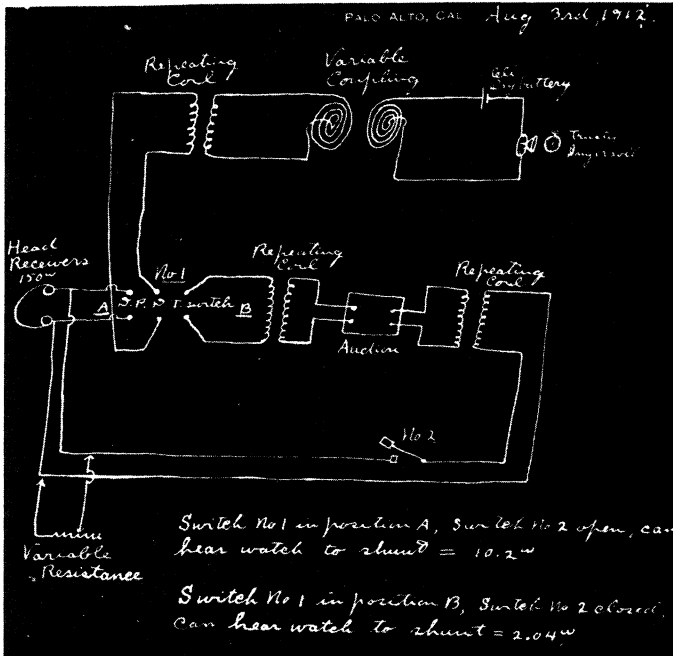 PALO ALTO, CAL Aug 3rd, 1912.
Repeating
Coil
Variable
Coupling
Cell
Dry battery
Transmitter
Ingersoll
Head
Receivers
150ω
No 1
A
D.P.D.T. switch
B
Repeating
Coil
Audion
Repeating
Coil
No 2
Variable
Resistance
Switch No 1 in position A, Switch No 2 open, can
hear watch to shunt = 10.2ω
Switch No 1 in position B, Switch No 2 closed,
can hear watch to shunt = 2.04ω